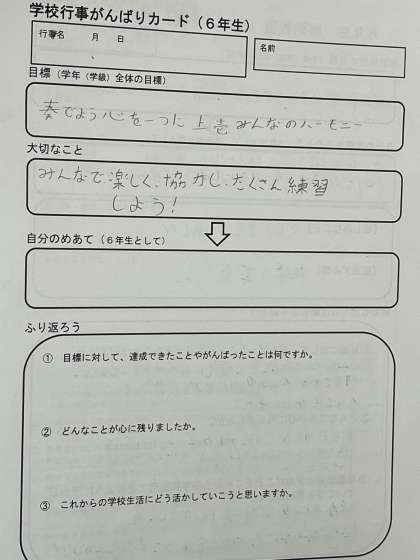 学校行事がんばりカード（６年生）
行事名　　月　　日
名前
目標（学年（学級）全体の目標）
奏でよう心を一つに 上壱 みんなのハーモニー
大切なこと
みんなで楽しく、協力し、たくさん練習
しよう！
自分のめあて（６年生として）
ふり返ろう
① 目標に対して、達成できたことやがんばったことは何ですか。
② どんなことが心に残りましたか。
③ これからの学校生活にどう活かしていこうと思いますか。